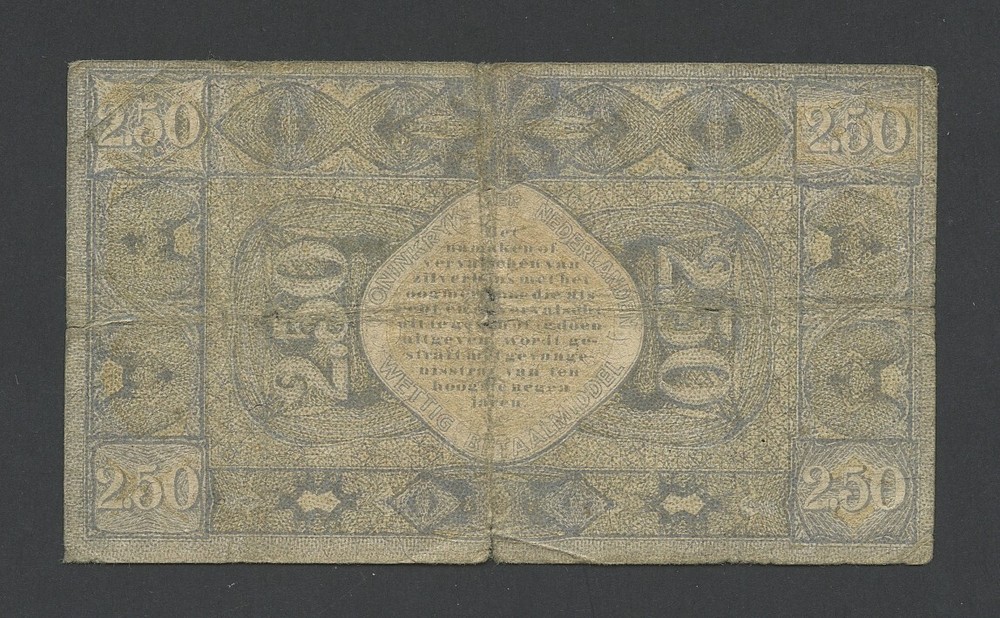 2.50 2.50
KONINKRYK DER NEDERLANDEN
Het
namaken of
vervalschen van
zilverbons met het
oogmerk om die als
echt en onvervalscht
uit te geven of te doen
uitgeven, wordt ge-
straft met gevange-
nisstraf van ten
hoogste negen
jaren
WETTIG BETAALMIDDEL
2.50
2.50
2.50 2.50